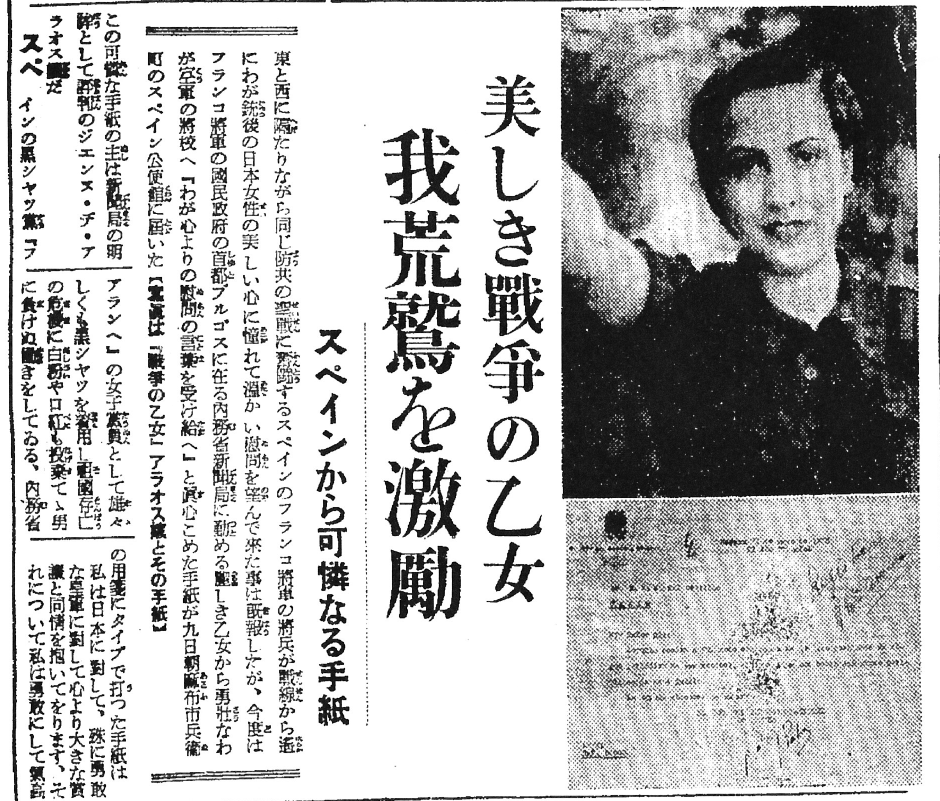 美しき戰爭の乙女
我荒鷲を激勵
スペインから可憐なる手紙
東と西に隔たりながら同じ防共の聖戰に奮鬪するスペインのフランコ將軍の將兵が戰線から遙
にわが銃後の日本女性の美しい心に憧れて溫かい慰問を望んで來た事は既報したが、今度は
フランコ將軍の國民政府の首都ブルゴスに在る內務省新聞局に勤める麗しき乙女から勇壯なわ
が空軍の將校へ『わが心よりの慰問の言葉を受け給へ』と眞心こめた手紙が九日朝麻布市兵衞
町のスペイン公使館に屆いた【寫眞は『戰爭の乙女』アラオス孃とその手紙】
この可憐な手紙の主は新聞局の明
眸として評判のジエンヌ・デ・ア
ラオス孃だ
スペインの黑シャツ黨『フ
アランヘ』の女子黨員として雄々
しくも黑シャツを着用し祖國存亡
の危機に白粉や口紅も投棄てゝ男
に負けぬ働きをしてゐる、內務省
の用箋にタイプで打つた手紙は
私は日本に對して、殊に勇敢
な皇軍に對して心より大きな賞
讃と同情を抱いてをります、そ
れについて私は勇敢にして氣高